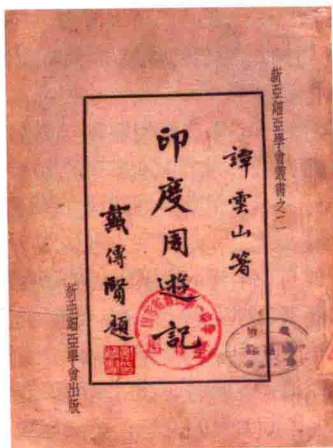 新亞細亞學會叢書之二
譚雲山著
印度周遊記
戴傳賢題
新亞細亞學會出版